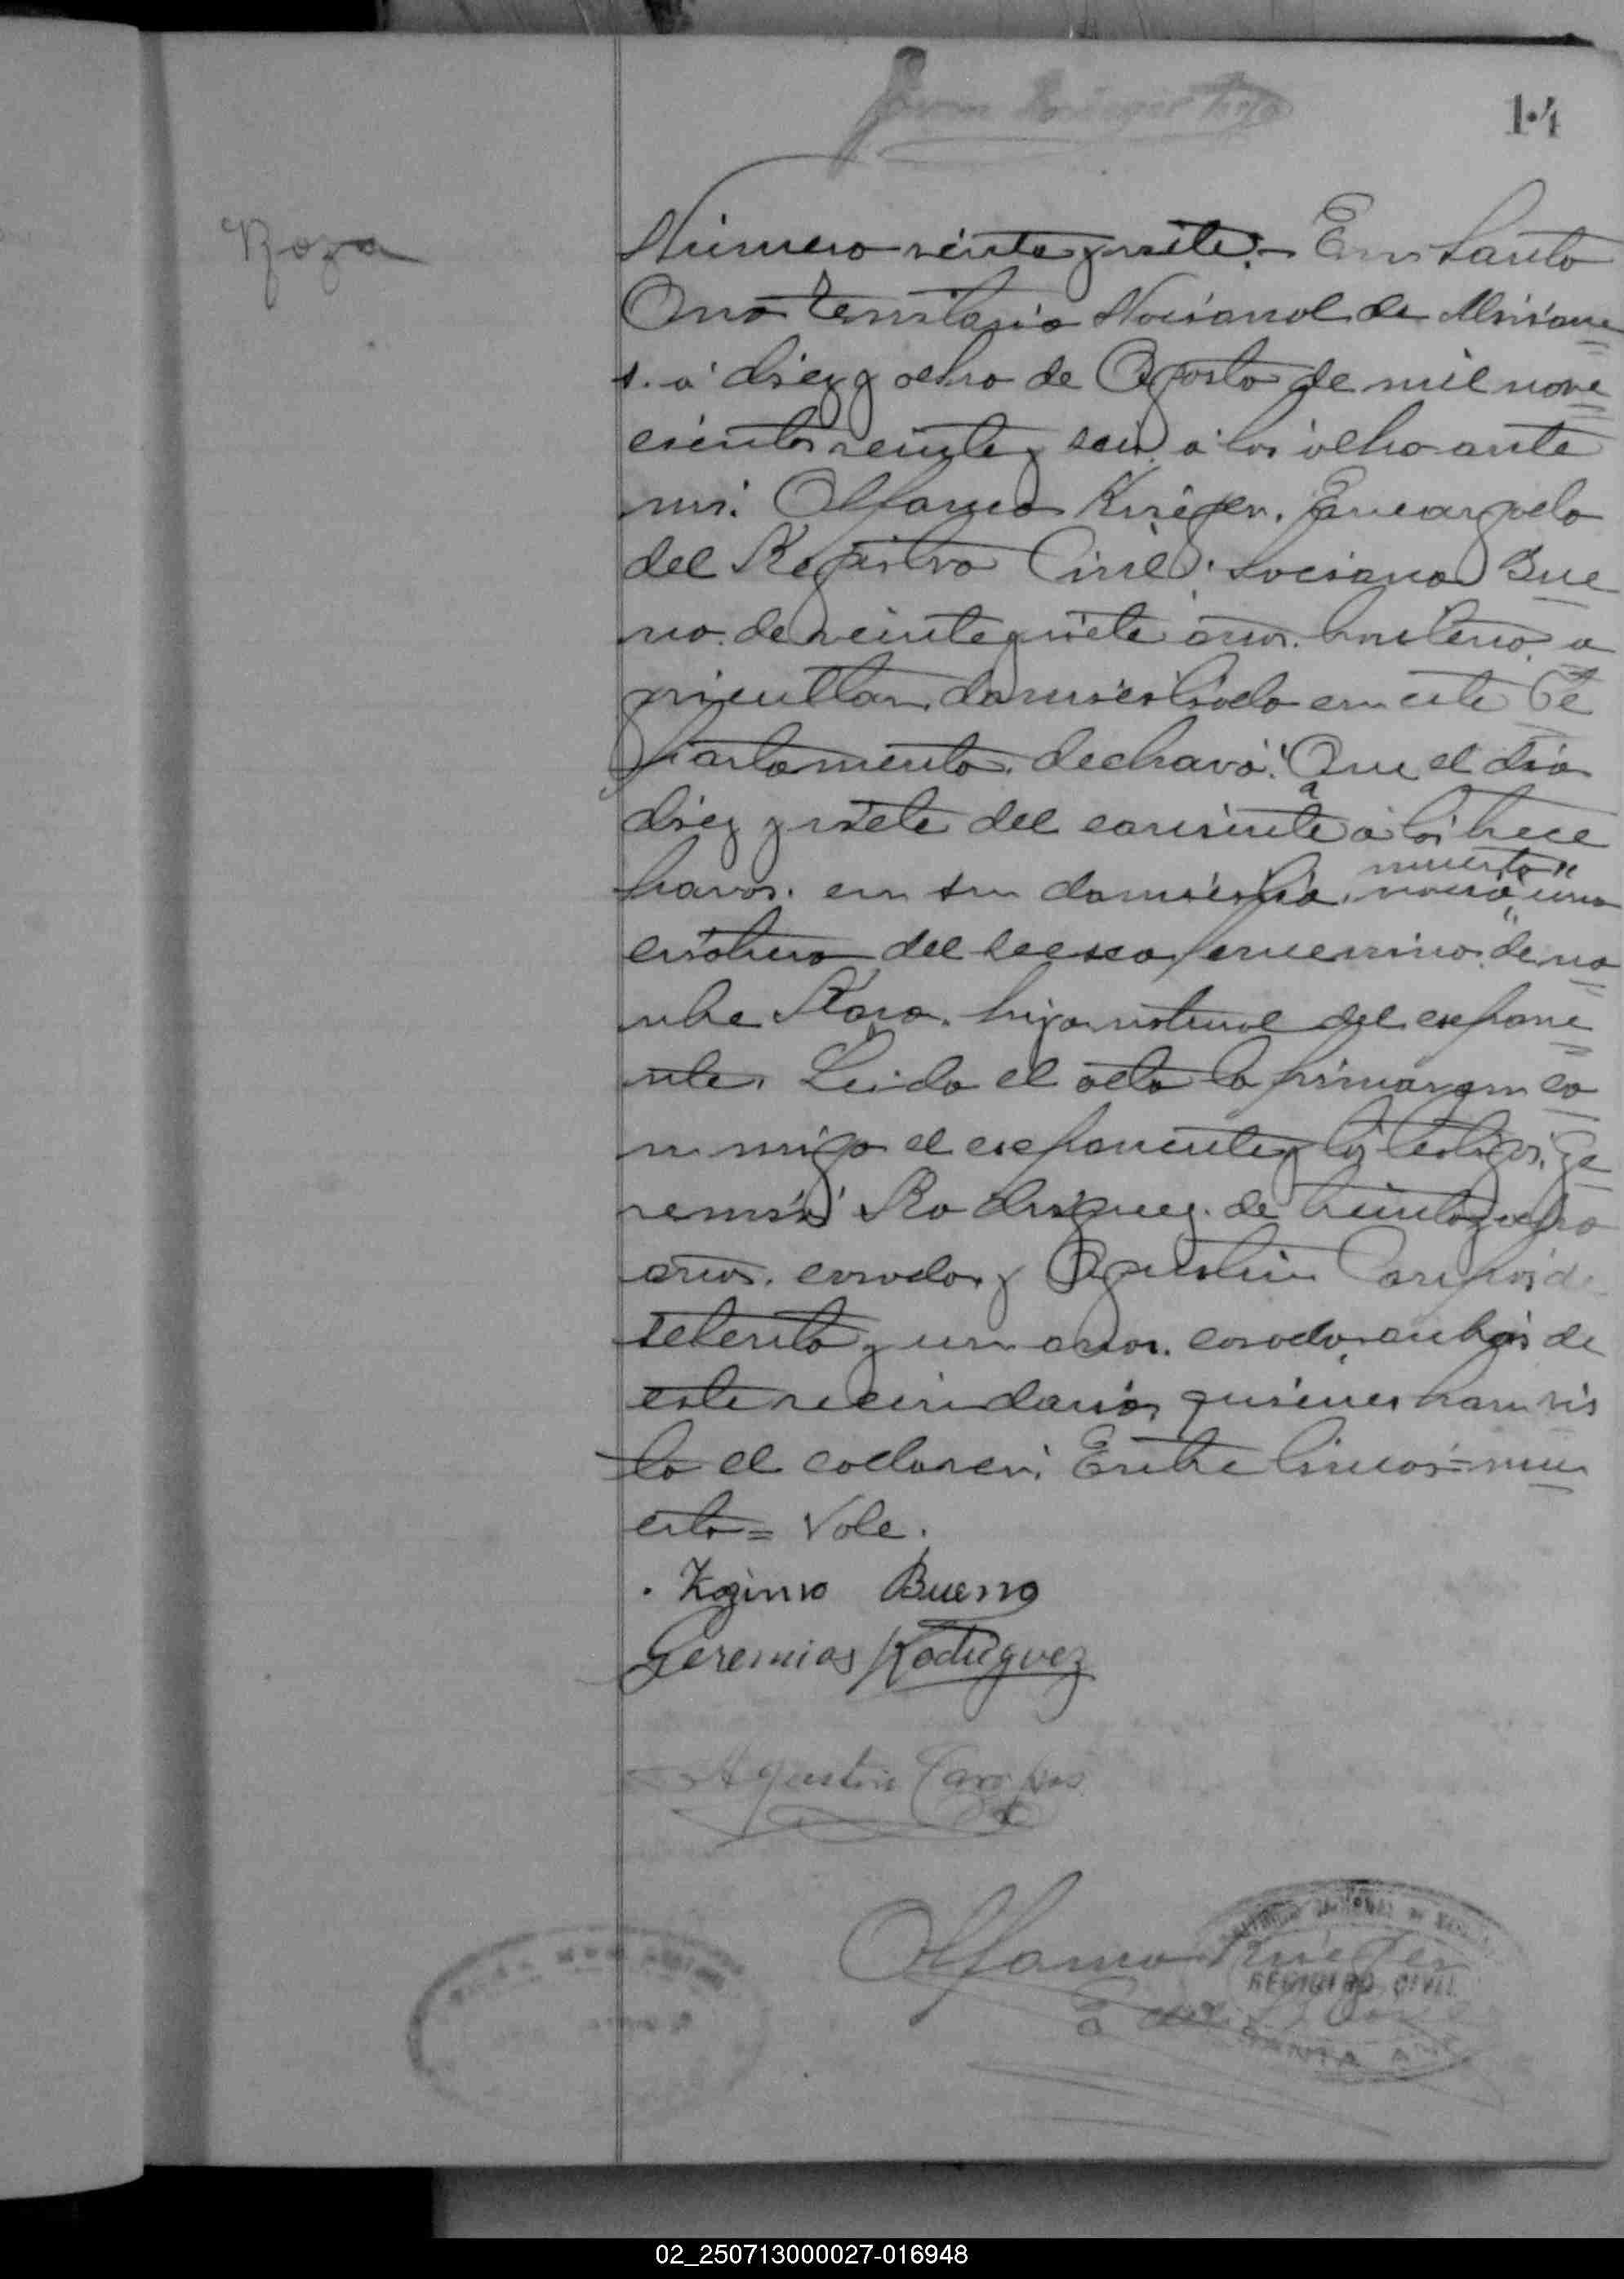 14
Roza
Número veinte y siete.- En Santa
Ana Territorio Nacional de Misione
s. á diez y ocho de Agosto de mil nove
cientos veinte y seis á las ocho ante
mi. Alfonso Krieger. Encargado
del Registro Civil: Bue
no. de veinte y siete años. soltero. a
gricultor, domiciliado en este De
partamento. declaró: Que el día
diez y siete del corriente á las trece
horas. en su domicilio. nació "muerta" una
criatura del secso femenino. de no
mbre Roza. hija natural del espone
nte. Leida el acta la firmaron co
nmigo el esponente y los testigos. Ge
remias Rodriguez. de treinta y ocho
años. casado. y Agustin Campos de
setenta y un años. casado. anbos de
este vecindario, quienes han vis
to el cadaver. Entre lineas = mu
erta = Vale.
Bueno
Geremias Rodriguez
Agustin Campos
Alfonso Krieger
REGISTRO CIVIL
SANTA ANA
02_250713000027-016948